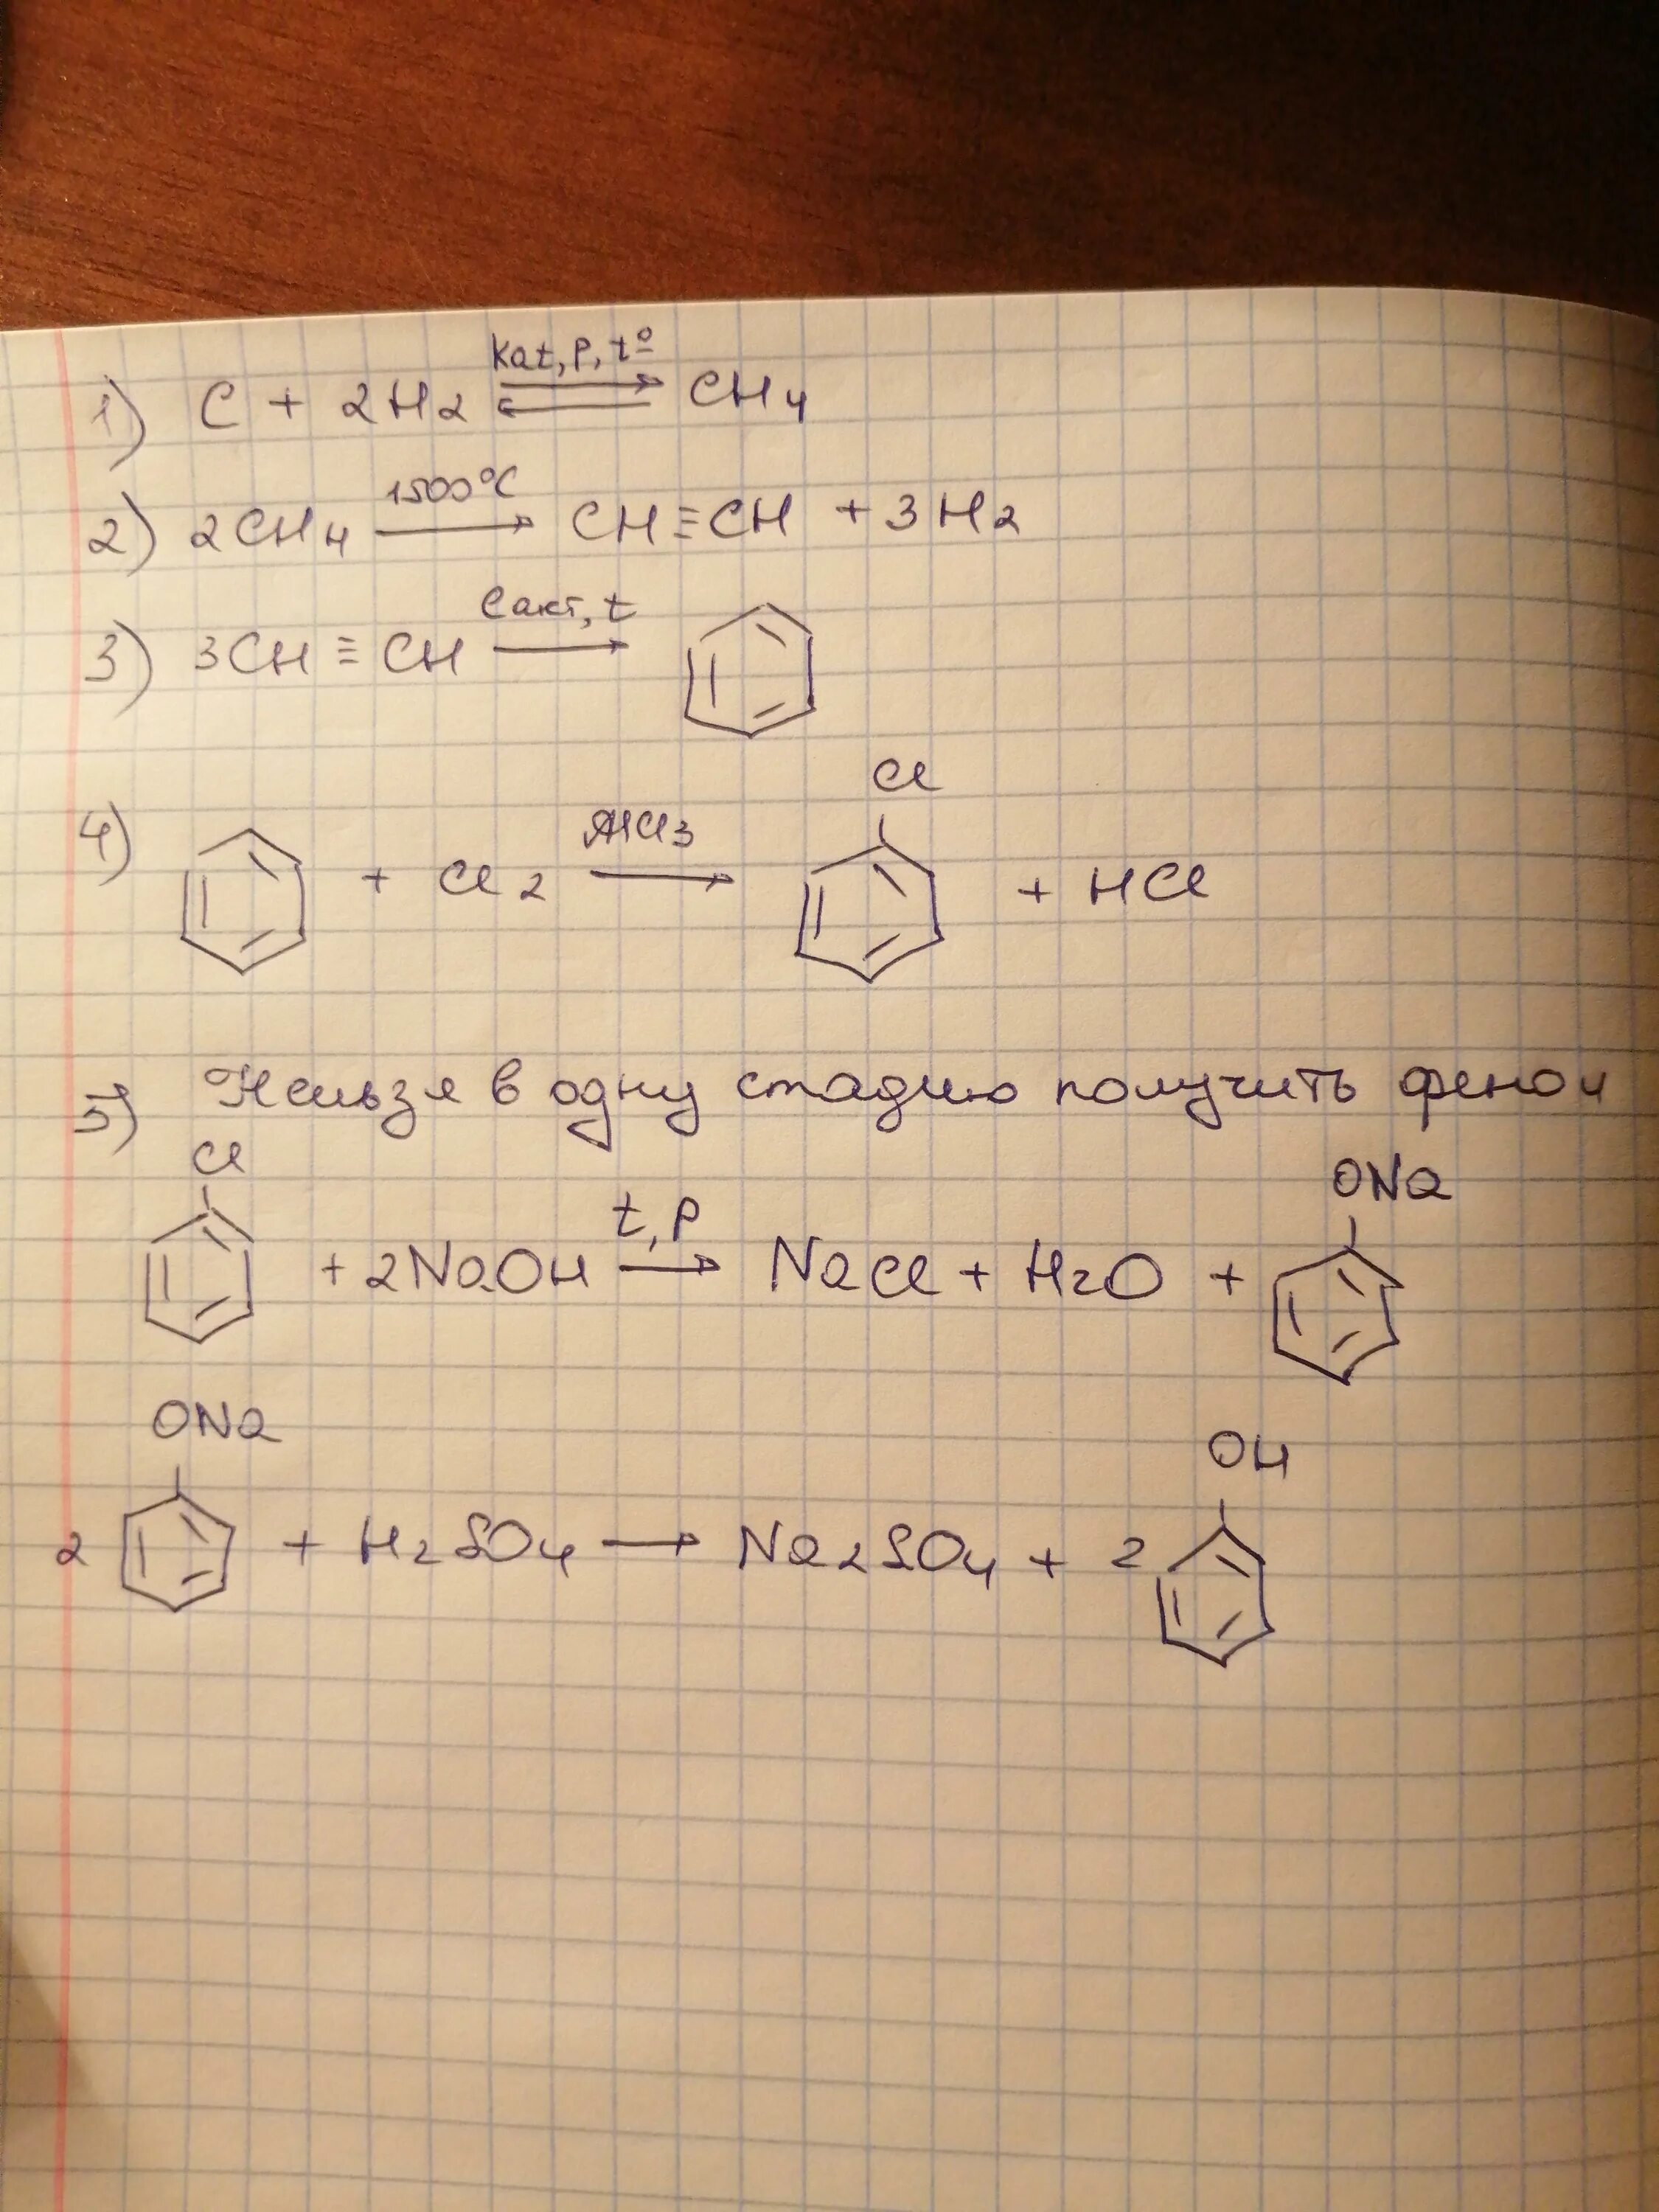 1) C + 2H2 ⇄ kat, p, t° CH4
2) 2CH4 1500°C → CH≡CH + 3H2
3) 3CH≡CH Cакт, t →
Cl
4) + Cl2 AlCl3 → + HCl
5) Нельзя в одну стадию получить фенол
Cl ONa
+ 2NaOH t, p → NaCl + H2O +
ONa OH
2 + H2SO4 → Na2SO4 + 2